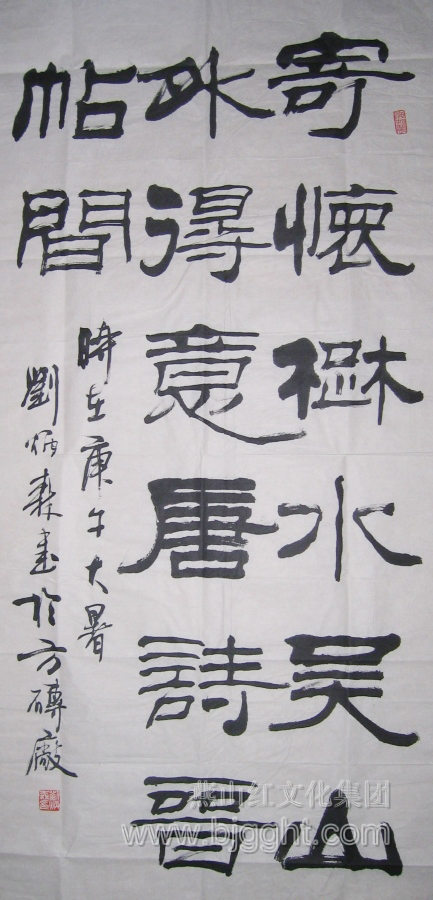 寄懷楚水吳山
外得意唐詩晉
帖間
時在庚午大暑
劉炳森書於方磚廠
燕山红文化集团
www.bjgght.com